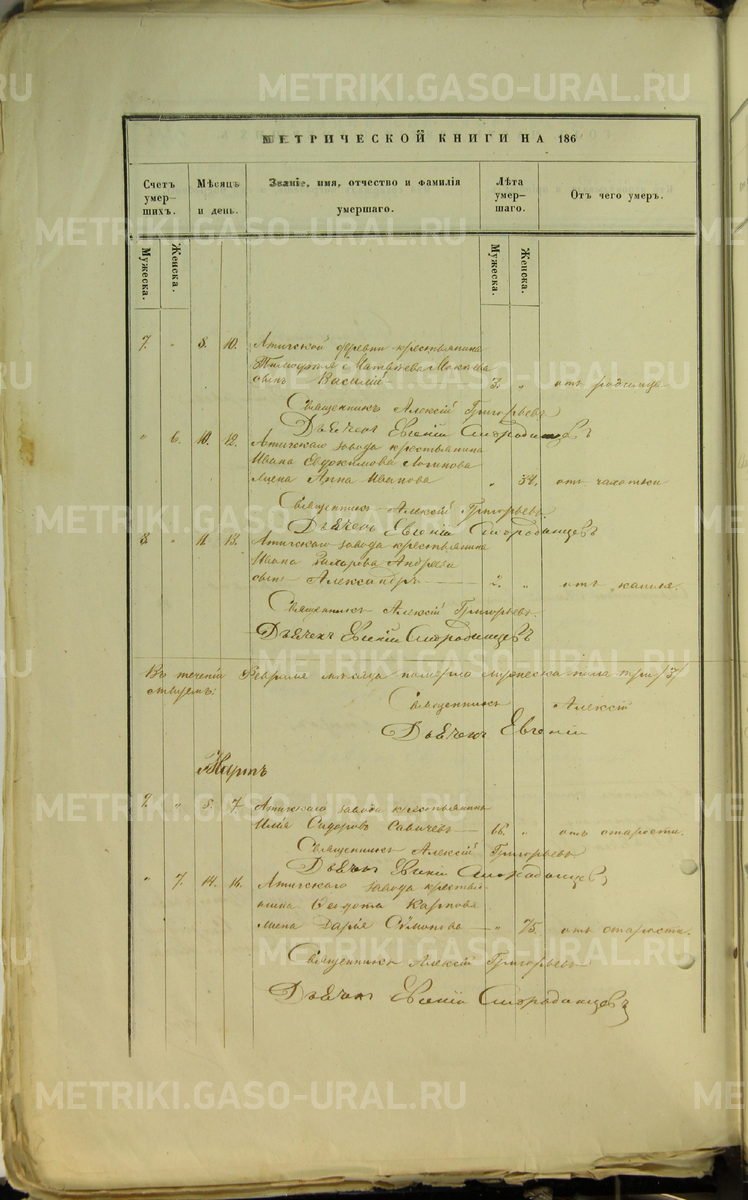 METRIKI.GASO-URAL.RU
МЕТРИЧЕСКОЙ КНИГИ НА 186
Счетъ умер-шихъ.
Мѣсяцъ и день.
Званіе, имя, отчество и фамилія умершаго.
Лѣта умер-шаго.
Отъ чего умеръ.
Мужеска.
Женска.
Мужеска.
Женска.
7. " 8. 10. Атигской деревни крестьянина
Тимофея Матвѣева
сынъ Василій 3. " отъ родимца
Священникъ Алексій Григорьевъ
Дьячекъ Евгеній Смородинцевъ
" 6. 10. 12. Атигскаго завода крестьянина
Ивана Евдокимова Логинова
жена Анна Иванова " 34. отъ чахотки
Священникъ Алексій Григорьевъ
Дьячекъ Евгеній Смородинцевъ
8. " 11. 13. Атигскаго завода крестьянина
Ивана Захарова
сынъ Александръ 2. " отъ кашля.
Священникъ Алексій Григорьевъ.
Дьячекъ Евгеній Смородинцевъ
Въ теченіи Февраля мѣсяца померло мужеска пола три /3/
Священникъ Алексій
Дьячекъ Евгеній
Мартъ
9. " 5. 7. Атигскаго завода крестьянинъ
Илія Сидоровъ Савичевъ 66. " отъ старости.
Священникъ Алексій Григорьевъ
Дьячекъ Евгеній Смородинцевъ
" 7. 14. 16. Атигскаго завода крестья-
нина Федота Карпова
жена Дарья " 75. отъ старости.
Священникъ Алексій Григорьевъ
Дьячекъ Евгеній Смородинцевъ